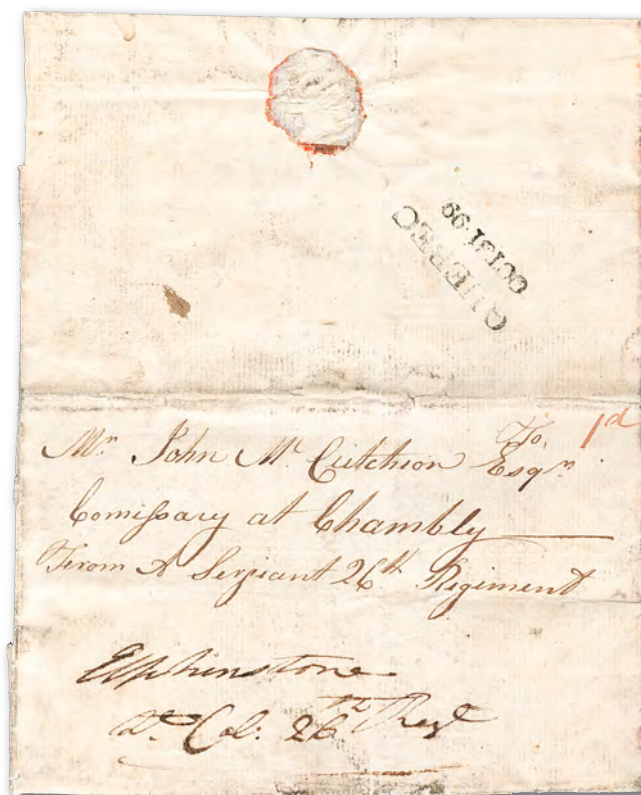 QUEBEC
OCT.31.99
To, 1d
Mr. John Mc Cutchion Esqr.
Comissary at Chambly
From A Serjeant 26th Regiment
Elphinstone
Lt. Col. 26th Regt